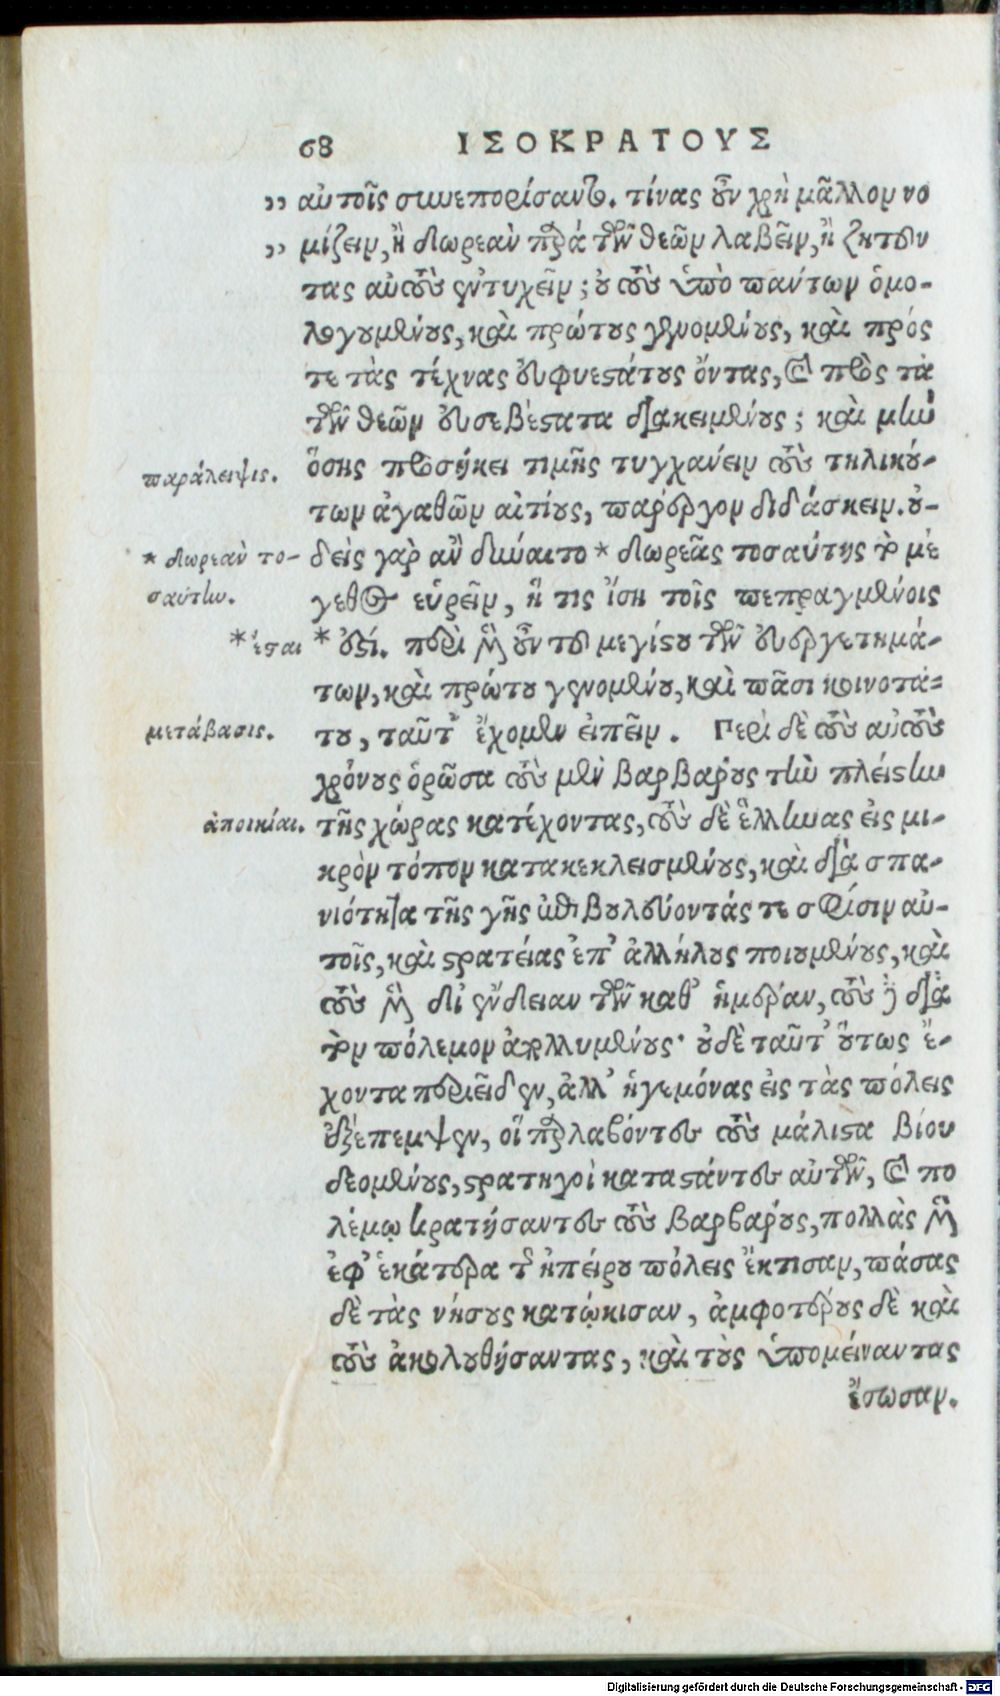 68 ΙΣΟΚΡΑΤΟΥΣ
,, αὐτοῖς συνεπορίσαντο. τίνας οὖν χρὴ μᾶλλον νο
,, μίζειν, ἢ δωρεὰν παρὰ τῶν θεῶν λαβεῖν, ἢ ζητοῦν
τας αὐτοὺς ἐντυχεῖν; οὐ τοὺς ὑπὸ πάντων ὁμο-
λογουμένους, καὶ πρώτους γενομένους, καὶ πρός
τε τὰς τέχνας εὐφυεστάτους ὄντας, καὶ πρὸς τὰ
τῶν θεῶν εὐσεβέστατα διακειμένους; καὶ μὴν
παράλειψις.
ὅσης προσήκει τιμῆς τυγχάνειν τοὺς τηλικού-
των ἀγαθῶν αἰτίους, πάρεργον διδάσκειν. οὐ-
* δωρεὰν το-
σαύτην.
δεὶς γὰρ ἂν δύναιτο * δωρεᾶς τοσαύτης τὸ μέ
γεθος εὑρεῖν, ἥ τις ἴση τοῖς πεπραγμένοις
*ἔσται
* ἐστί. περὶ μὲν οὖν τοῦ μεγίστου τῶν εὐεργετημά-
των, καὶ πρώτου γενομένου, καὶ πᾶσι κοινοτά-
μετάβασις.
του, ταῦτ' ἔχομεν εἰπεῖν. Περὶ δὲ τοὺς αὐτοὺς
χρόνους ὁρῶσα τοὺς μὲν βαρβάρους τὴν πλείστην
ἀποικίαι.
τῆς χώρας κατέχοντας, τοὺς δὲ ἕλληνας εἰς μι-
κρὸν τόπον κατακεκλεισμένους, καὶ διὰ σπα-
νιότητα τῆς γῆς ἐπιβουλεύοντάς τε σφίσιν αὐ-
τοῖς, καὶ στρατείας ἐπ' ἀλλήλους ποιουμένους, καὶ
τοὺς μὲν δι' ἔνδειαν τῶν καθ' ἡμέραν, τοὺς δὲ διὰ
τὸν πόλεμον ἀπολλυμένους· οὐδὲ ταῦτ' οὕτως ἔ-
χοντα περιεῖδεν, ἀλλ' ἡγεμόνας εἰς τὰς πόλεις
ἐξέπεμψεν, οἳ παραλαβόντες τοὺς μάλιστα βίου
δεομένους, στρατηγοὶ καταστάντες αὐτῶν, καὶ πο
λέμῳ κρατήσαντες τοὺς βαρβάρους, πολλὰς μὲν
ἐφ' ἑκάτερα τῆς ἠπείρου πόλεις ἔκτισαν, πάσας
δὲ τὰς νήσους κατῴκισαν, ἀμφοτέρους δὲ καὶ
τοὺς ἀκολουθήσαντας, καὶ τοὺς ὑπομείναντας
ἔσωσαν.
Digitalisierung gefördert durch die Deutsche Forschungsgemeinschaft - DFG